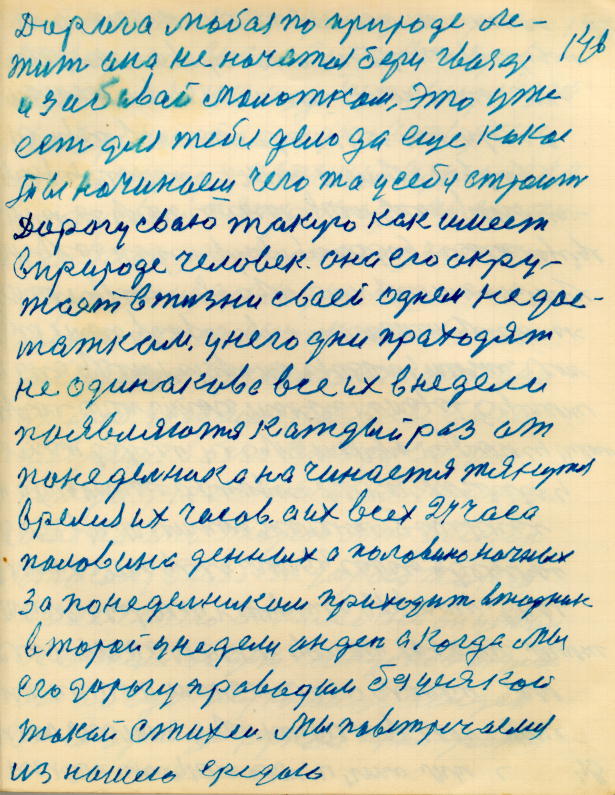 Дорога любая по природе ле-
жит она не начатая бери гвоздь 146
и забивай молотком, Это уже
есть для тебя дело да еще какое
Ты начинаеш чего та у себя строит
Дорогу сваю такую как имеет
в природе человек. она его окру-
жает в жизни своей однем недос-
татком. у него дни праходят
не одинаково все их в недели
появляются каждый раз от
понеделника начинается тянутся
время их часов. а их всех 24 часа
половина денных а половино ночных
За понеделником приходит вторник
второй у недели он ден а когда мы
его дорогу праводим без усякой
такой стихеи Мы повстречаемся
из нашею средаю